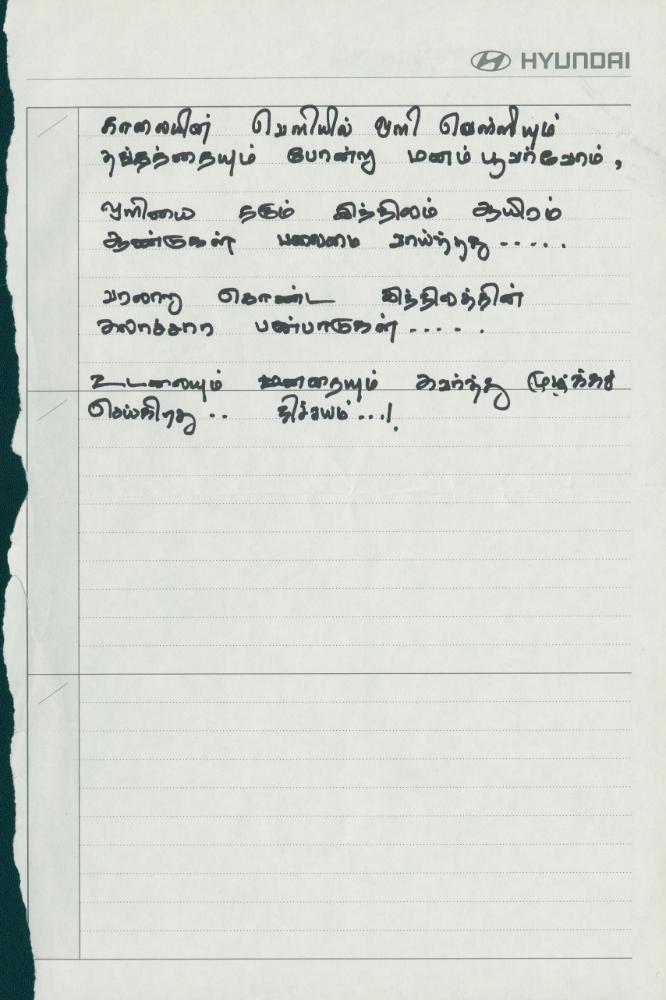 HYUNDAI
காலையின் வெளியில் ஒளி வெள்ளியும்
தங்கத்தையும் போன்று மனம் பூவர்வோம்,
ஒளியை தரும் இந்நிலம் ஆயிரம்
ஆண்டுகள் பழைமை வாய்ந்தது.....
வரலாறு கொண்ட இந்நிலத்தின்
கலாச்சார பண்பாடுகள்.....
உடலையும் மனதையும் கவர்ந்து
செய்கிறது.. நிச்சயம்...!